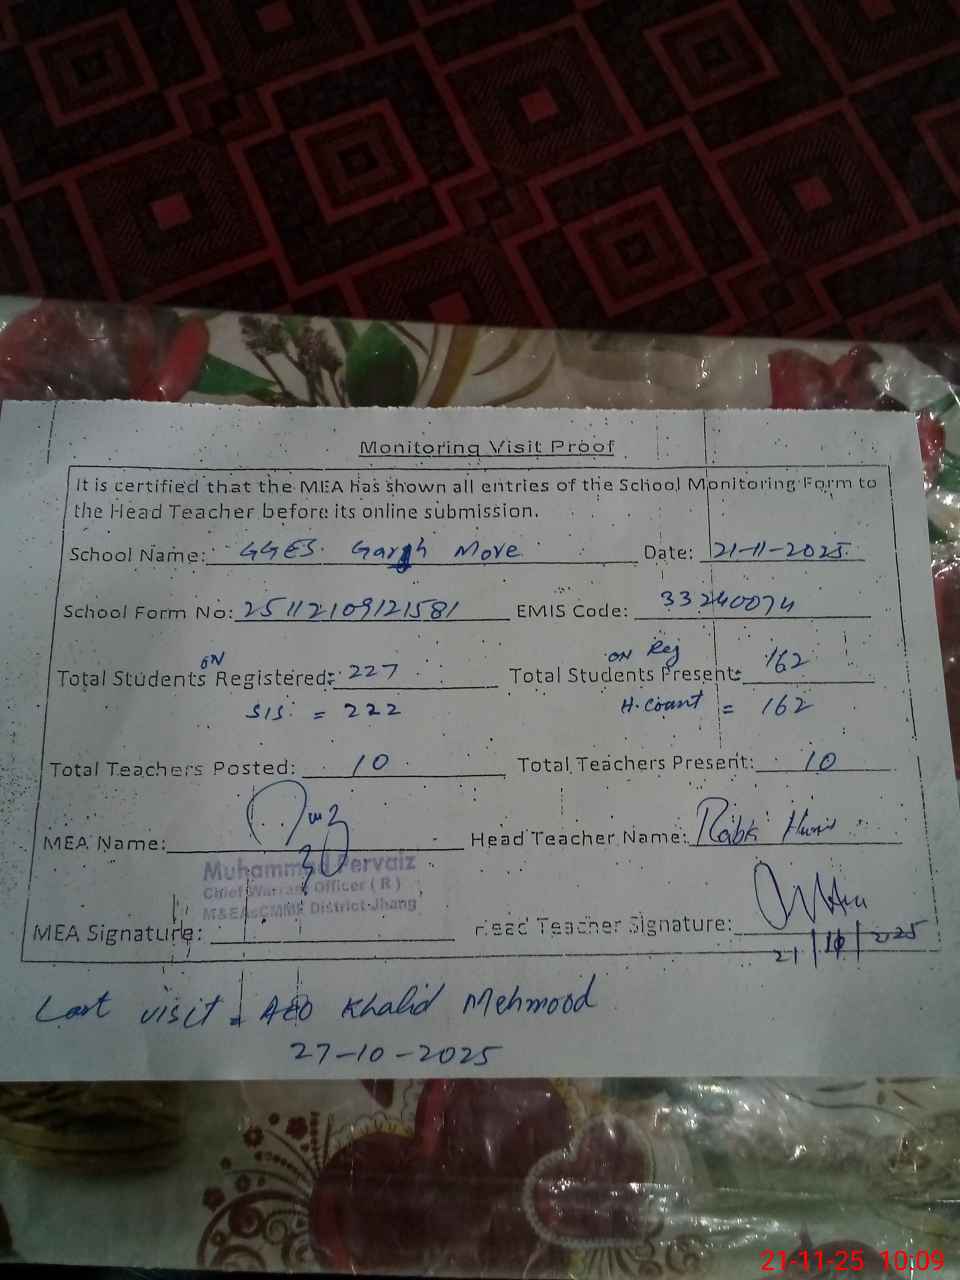 Monitoring Visit Proof
It is certified that the MEA has shown all entries of the School Monitoring Form to
the Head Teacher before its online submission.
School Name: GGES. Gargh More Date: 21-11-2025.
School Form No: 25112109121581 EMIS Code: 33240074
ON ON Reg
Total Students Registered: 227 Total Students Present: 162
SIS. = 222 H. Count = 162
Total Teachers Posted: 10 Total Teachers Present: 10
MEA Name: Head Teacher Name: Rabk
Muhammad Pervaiz
Chief Warrant Officer ( R )
M&EA CMMF District-Jhang
MEA Signature: Head Teacher Signature:
21/ /2025
Last visit = AEO Khalid Mehmood
27-10-2025
21-11-25 10:09